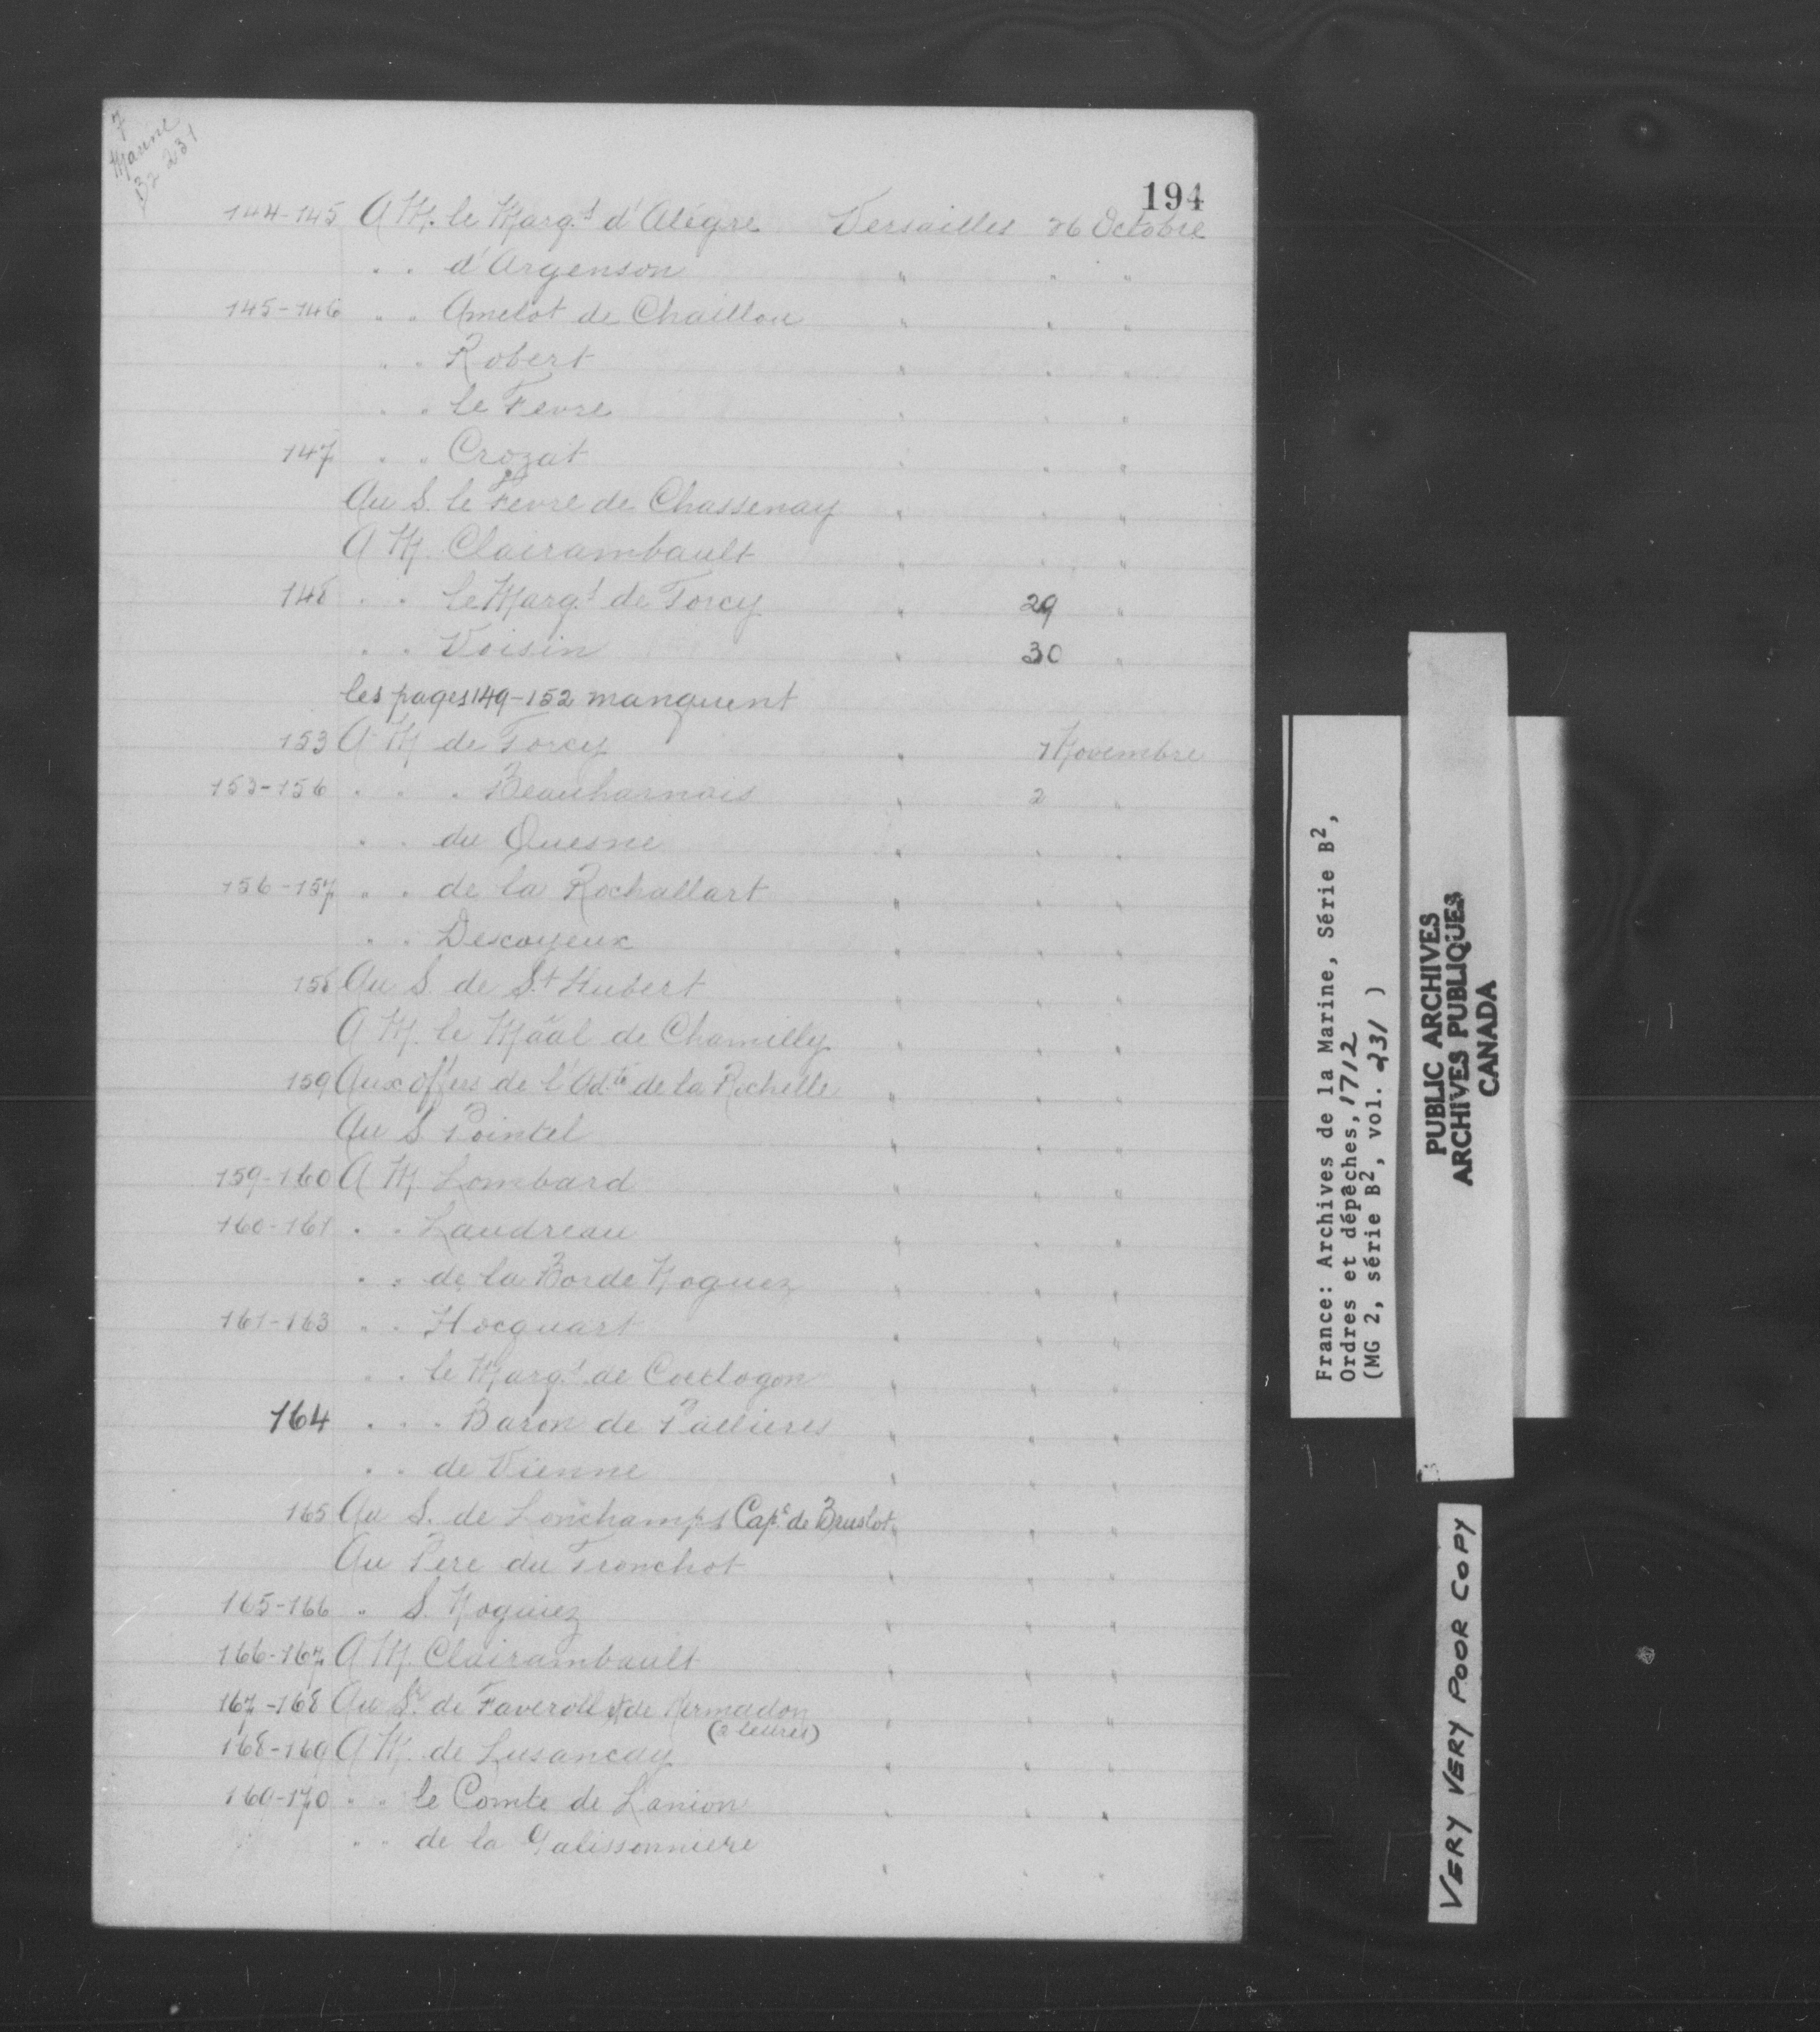 7
Marine
B2 231
194
144-145 A M. le Marq.s d'Alégre Versailles 26 Octobre
" " d'Argenson " " "
145-146 " " Amelot de Chaillou " " "
" " Robert " " "
" " le Fevre " " "
147 " " Crozat " " "
Au S. le Fevre de Chassenay " " "
A M. Clairambault " " "
148 " " le Marq.s de Torcy " 29 "
" " Voisin " 30 "
les pages 149-152 manquent
153 A M de Torcy " 1 Novembre
153-156 " " " Beauharnois " 2 "
" " du Quesne " " "
156-157 " " de la Rochallart " " "
" " Descoyeux " " "
158 Au S. de St Hubert " " "
A M. le Maāl de Chamilly " " "
159 Aux offers de l'Adté de la Rochelle " " "
Au S. Pointel " " "
159-160 A M Lombard " " "
160-161 " " Landreau " " "
" " de la Borde Noguez " " "
161-163 " " Hocquart " " "
" " le Marq.s de Coetlogon " " "
164 " " " Baron de Pallieres " " "
" " de Vienne " " "
165 Au S. de Lonchamps Cape de Bruslot " " "
Au Pere du Tronchot " " "
165-166 " S. Noguiez " " "
166-167 A M. Clairambault " " "
167-168 Au Sr. de Faveroll & de Kermadon " " "
(2 lettres)
168-169 A M. de Lusancay " " "
169-170 " " le Comte de Lanion " " "
" " de la Galissonniere " " "
France: Archives de la Marine, Série B2,
Ordres et dépêches, 1712
(MG 2, série B2, vol. 231 )
PUBLIC ARCHIVES
ARCHIVES PUBLIQUES
CANADA
VERY VERY POOR COPY